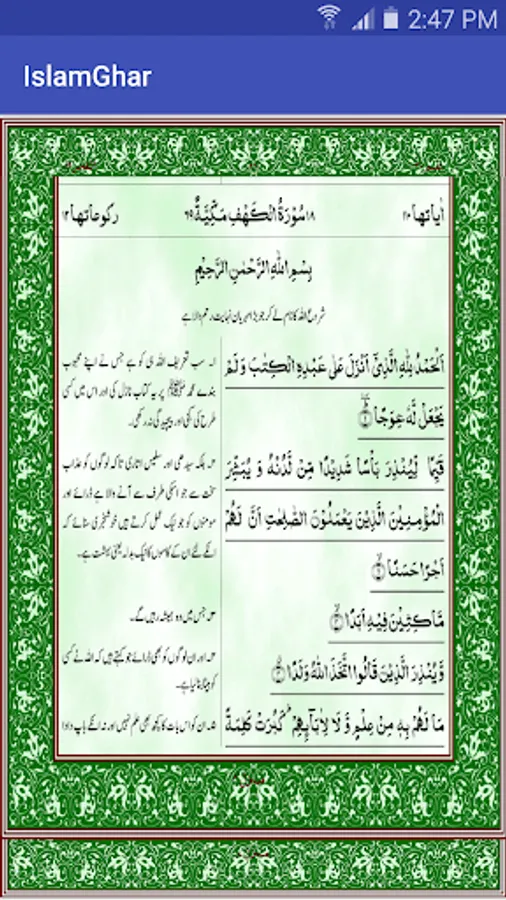 2:47 PM
IslamGhar
اٰیاتها ١١٠ ١٨ سُوْرَةُ الْكَهْفِ مَكِّيَّةٌ ٦٩ رکوعاتها ١٢
بِسْمِ اللهِ الرَّحْمٰنِ الرَّحِيْمِ
شروع اللہ کا نام لے کر جو بڑا مہربان نہایت رحم والا ہے
اَلْحَمْدُ لِلّٰهِ الَّذِيْٓ اَنْزَلَ عَلٰى عَبْدِهِ الْكِتٰبَ وَلَمْ
يَجْعَلْ لَّهٗ عِوَجًا ۜ ﴿١﴾
قَيِّمًا لِّيُنْذِرَ بَاْسًا شَدِيْدًا مِّنْ لَّدُنْهُ وَ يُبَشِّرَ
الْمُؤْمِنِيْنَ الَّذِيْنَ يَعْمَلُوْنَ الصّٰلِحٰتِ اَنَّ لَهُمْ
اَجْرًا حَسَنًا ﴿٢﴾
مَّاكِثِيْنَ فِيْهِ اَبَدًا ﴿٣﴾
وَّيُنْذِرَ الَّذِيْنَ قَالُوا اتَّخَذَ اللّٰهُ وَلَدًا ﴿٤﴾
مَا لَهُمْ بِهٖ مِنْ عِلْمٍ وَّ لَا لِاٰبَآىِٕهِمْ ؕ كَبُرَتْ كَلِمَةً
۱۔ سب تعریف اللہ ہی کو ہے جس نے اپنے محبوب
بندے محمد ﷺ پر یہ کتاب نازل کی اور اس میں کسی
طرح کی کجی اور پیچیدگی نہ رکھی۔
۲۔ بلکہ سیدھی اور سلیس اتاری تاکہ لوگوں کو عذاب
سخت سے جو اسکی طرف سے آنے والا ہے ڈرائے اور
مومنوں کو جو نیک عمل کرتے ہیں خوشخبری سنائے کہ
انکے لئے ان کے کاموں کا نیک بدلہ یعنی بہشت ہے۔
۳۔ جس میں وہ ہمیشہ رہیں گے۔
۴۔ اور ان لوگوں کو بھی ڈرائے جو کہتے ہیں کہ اللہ نے کسی
کو بیٹا بنا لیا ہے۔
۵۔ ان کو اس بات کا کچھ بھی علم نہیں اور نہ انکے باپ دادا